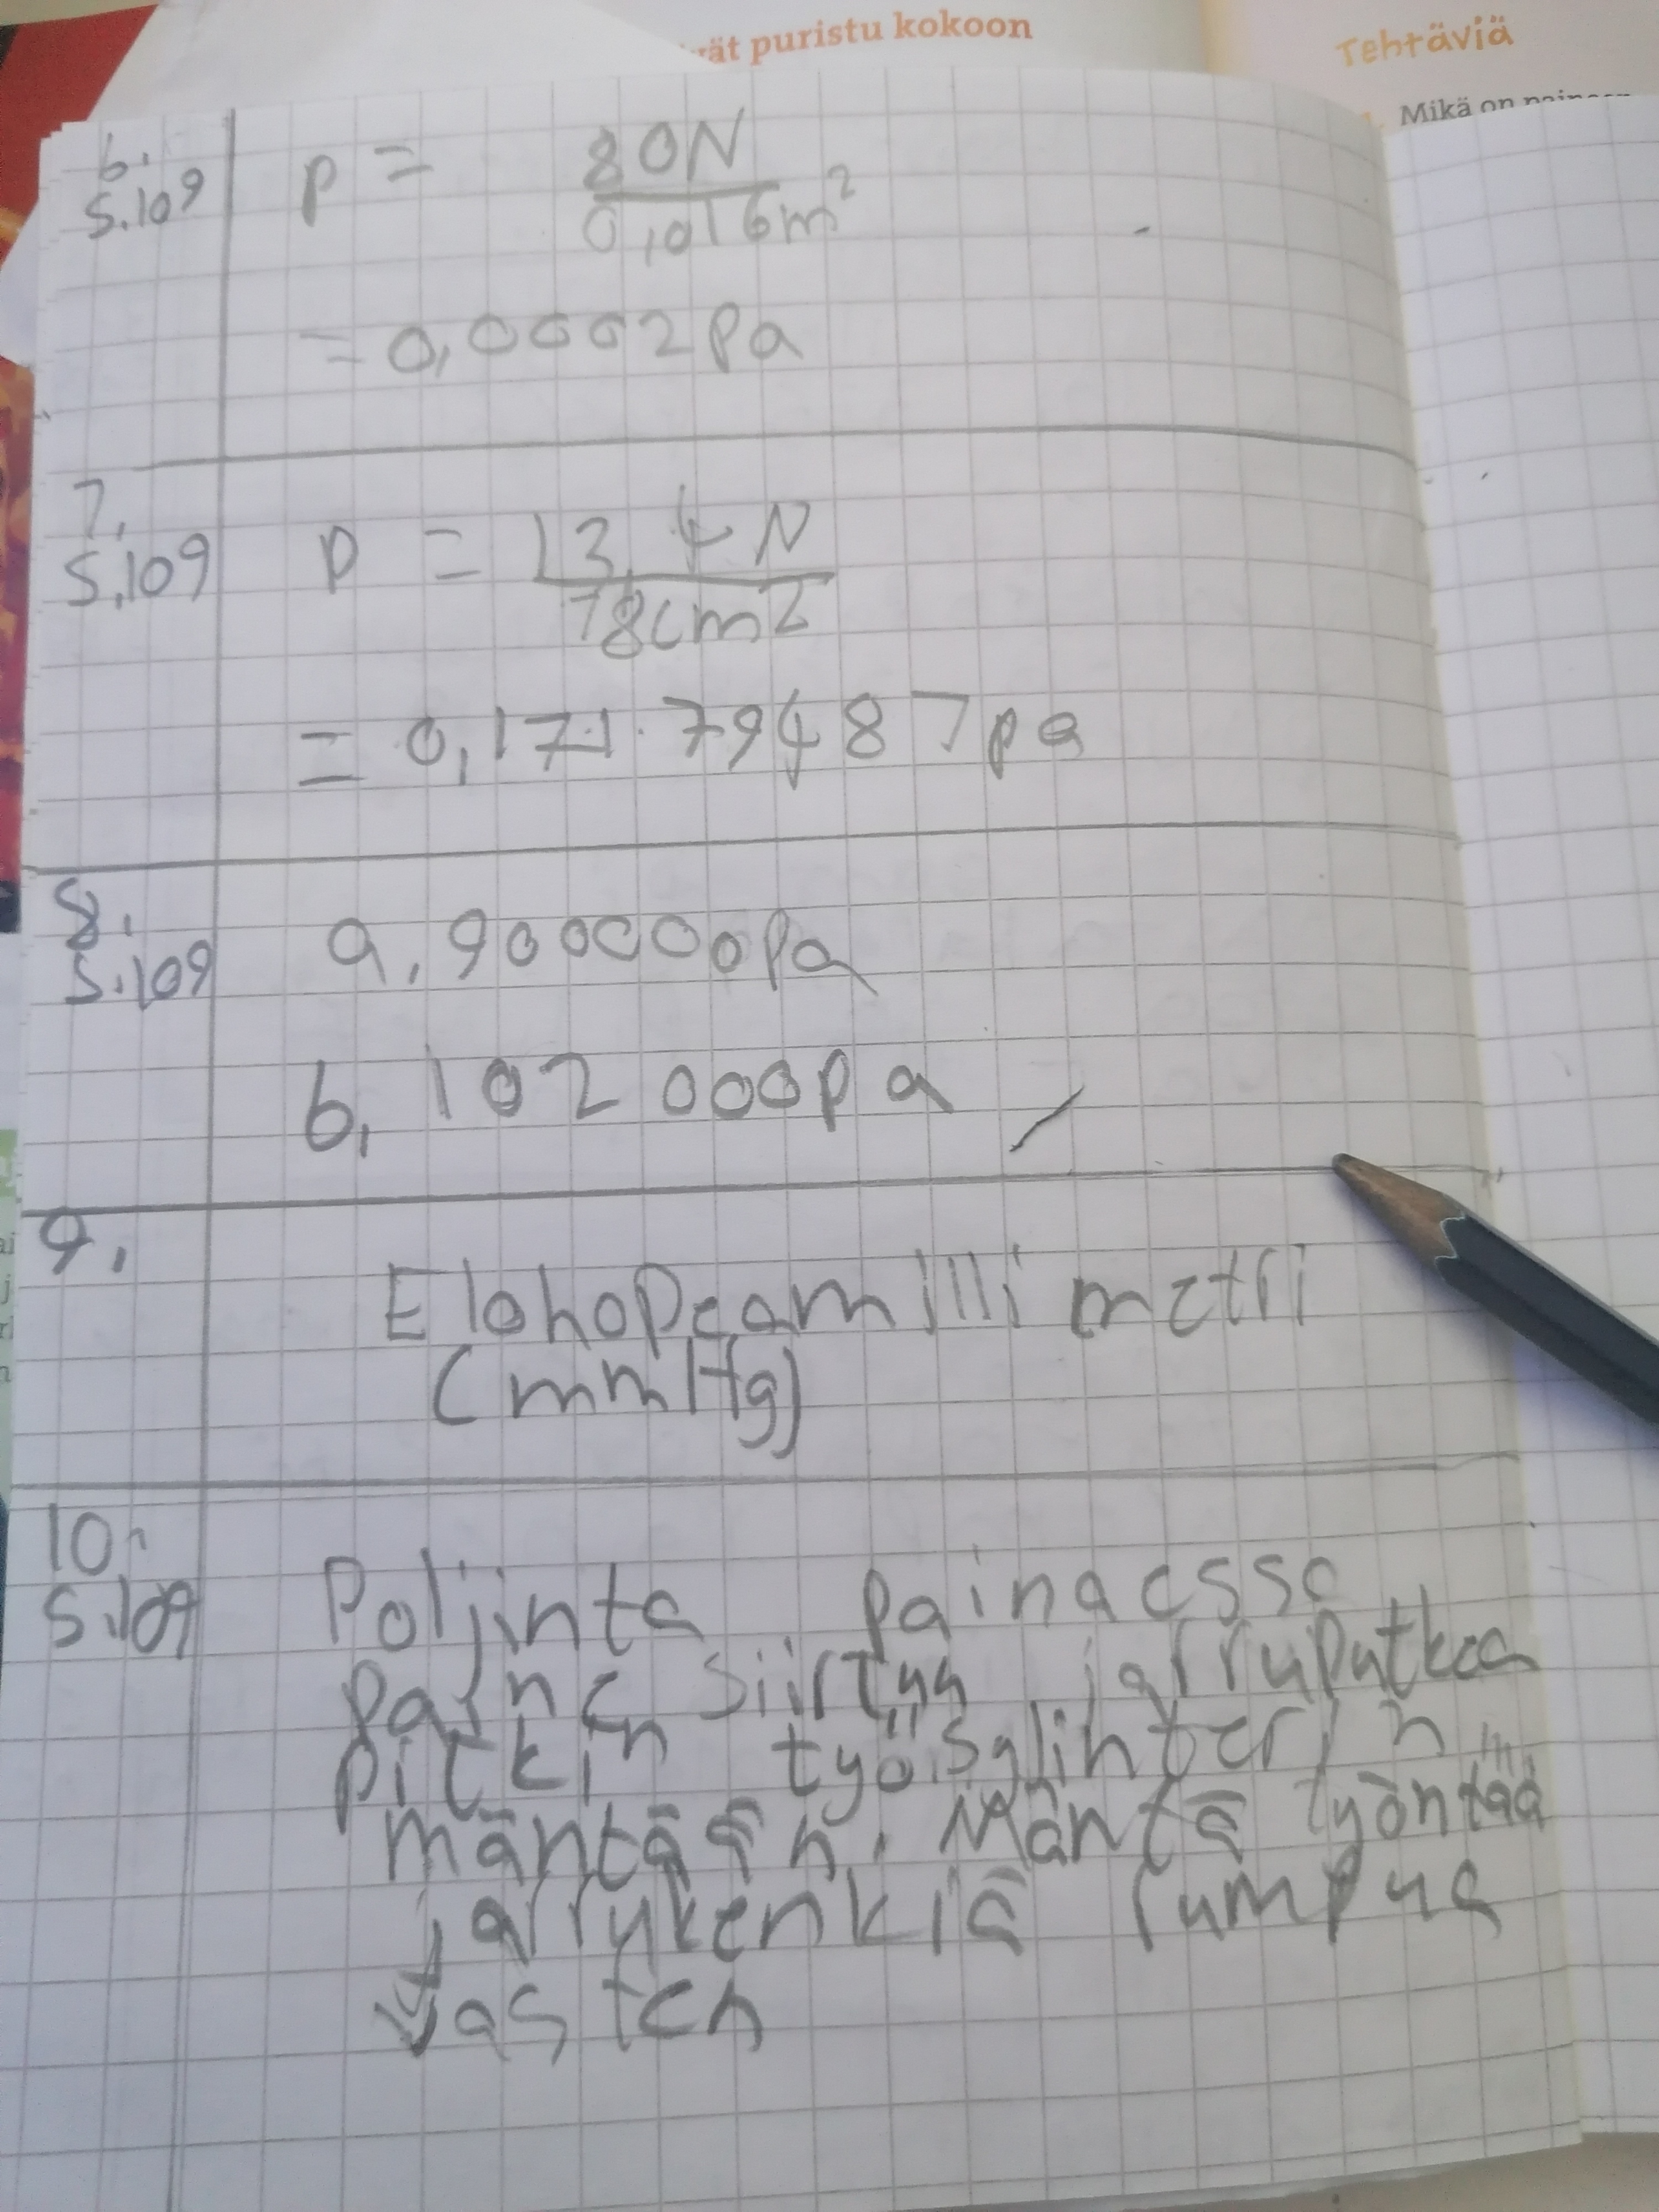 ät puristu kokoon
Tehtäviä
Mikä on
6.
S.109
p = 80N
0,016m²
= 0,0002Pa
7.
S.109
p = 13,4N
78cm2
= 0,171794487pa
8.
S.109
a, 900000Pa
b, 102 000Pa
9.
Elohopeamillimetri
(mmHg)
10.
S.109
Poljinta painaessa
paine siirtyy jarruputkea
pitkin työsylinterin
mäntään. Mäntä työntää
jarrukenkiä rumpua
vasten